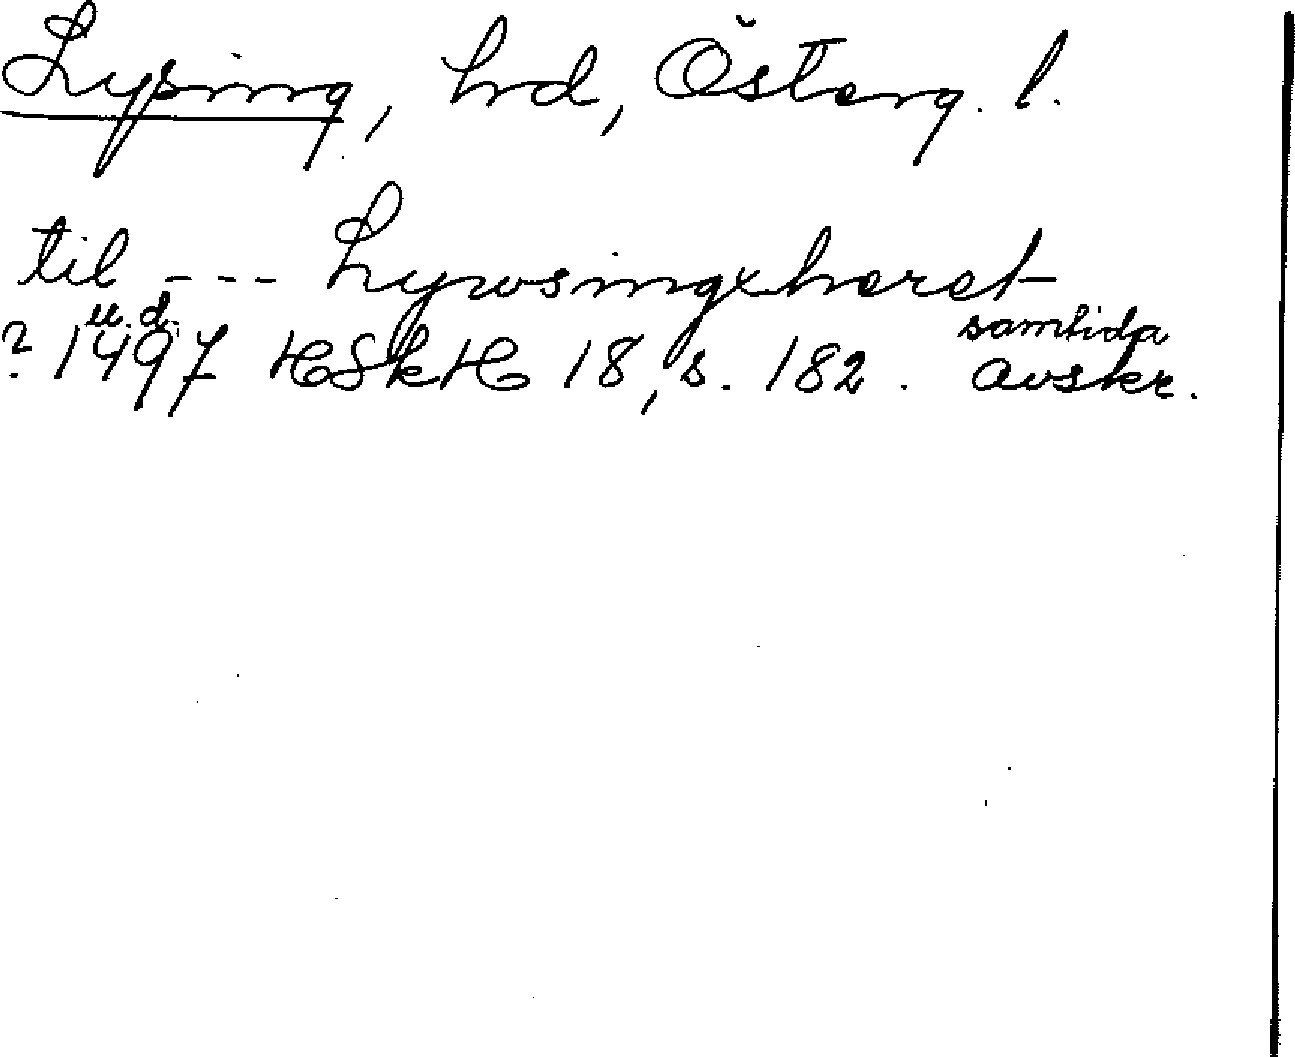 Lysing, hrd, Österg. l.
til --- Lywsingxheret
u.d. samtida
? 1497 HSkH 18, s. 182. avskr.